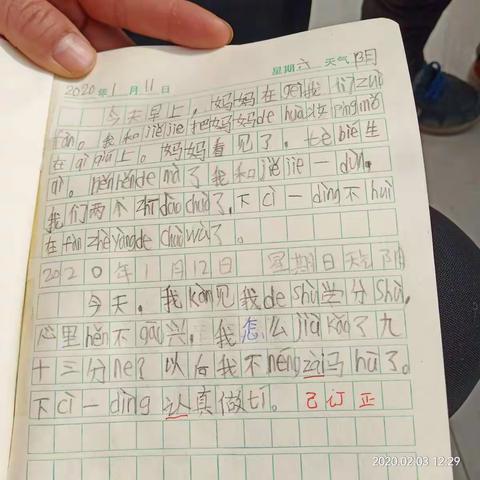 2020年1月11日 星期六 天气阴
今天早上,妈妈在gěi我们zuò
fàn。我和jiějie把妈妈de huà妆pǐnmǒ
在qì qiú上。妈妈看见了,tè bié生
qì。hěnhěnde mà了我和jiějie一dùn,
我们两个zhī dào cuò了,下cì一dìng不huì
在fàn zhèyàngde cuòwù了。
2020年1月12日 星期日天气阴
今天,我kàn见我de shù学分shù,
心里hěn不gāo兴,我怎么jiù kǎo了九
十三分ne?以后我不néng zài马hǔ了。
下cì一dìng认真做tí。 已订正
2020.02.03 12:29